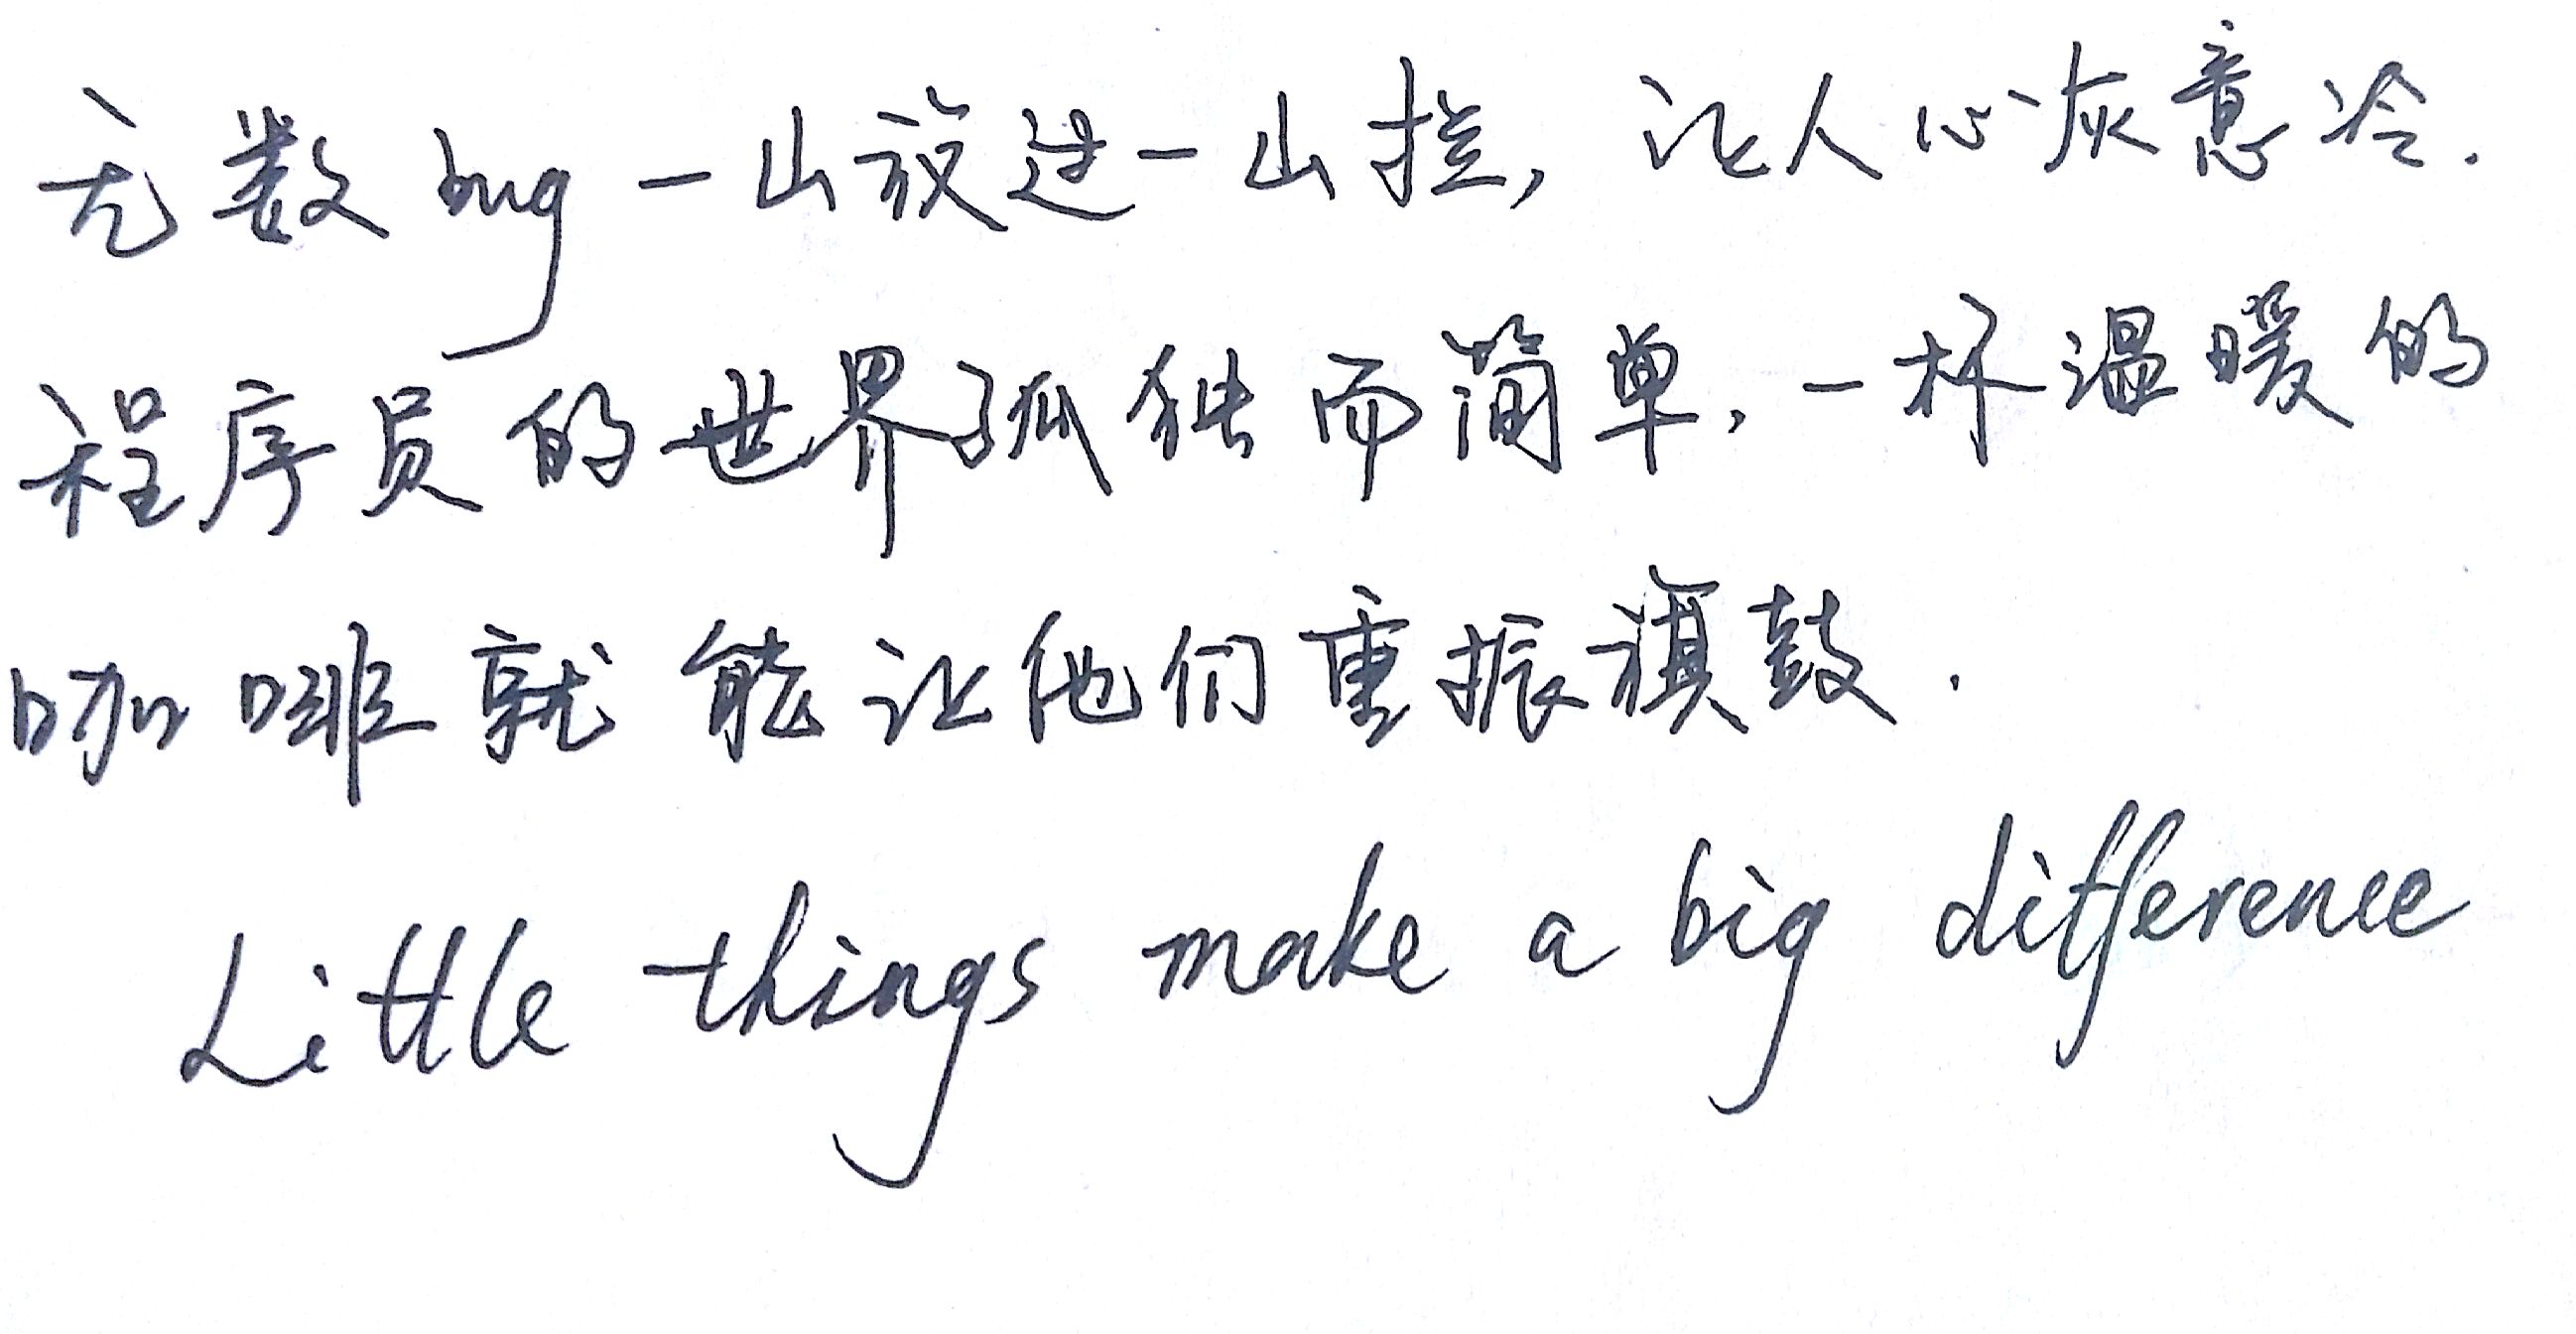 无数bug一山放过一山拦，让人心灰意冷.
程序员的世界孤独而简单，一杯温暖的
咖啡就能让他们重振旗鼓.
Little things make a big difference